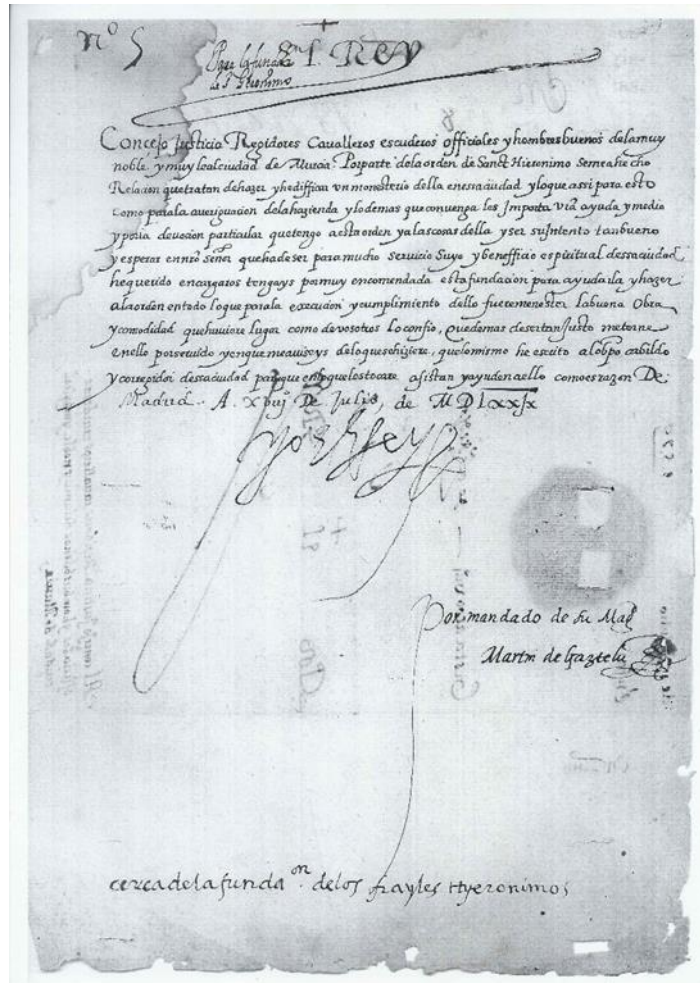 Nº 5
El REY
Para la fundaon
de St Gerónimo
Concejo Justicia Regidores Cavalleros escuderos officiales y hombres buenos de la muy
noble y muy leal ciudad de Murcia. Por parte de la orden de Sanct Hieronimo se me a hecho
Relacion que tratan de hazer y hedifficar un monesterio della en essa ciudad y lo que assi para esto
como para la averiguacion de la hazienda y lo demas que convenga les Importa vra ayuda y medio
y por la devocion particular que tengo a esta orden y a las cosas della y ser su Intento tan bueno
y esperar en nro Señor que ha de ser para mucho servicio Suyo y benefficio espiritual dessa ciudad
he querido encargaros tengays por muy encomendada esta fundacion para ayudarla y hazer
a la orden en todo lo que para la execucion y cumplimiento dello fuere menester la buena Obra
y comodidad que huviere lugar como de vosotros lo confio, Que demas de ser tan Justo me terne
en ello por servido y en que me aviseys de lo que se hiziere, que lo mismo he escrito al obpo cabildo
y corregidor dessa ciudad para que en lo que les tocare asistan y ayuden a ello como es razon De
Madrid. A xviij De Julio, de MDLxxjx
yo el Rey
Por mandado de su Magd
Martin de Gaztelu
cerca de la fundaon de los frayles Hyeronimos